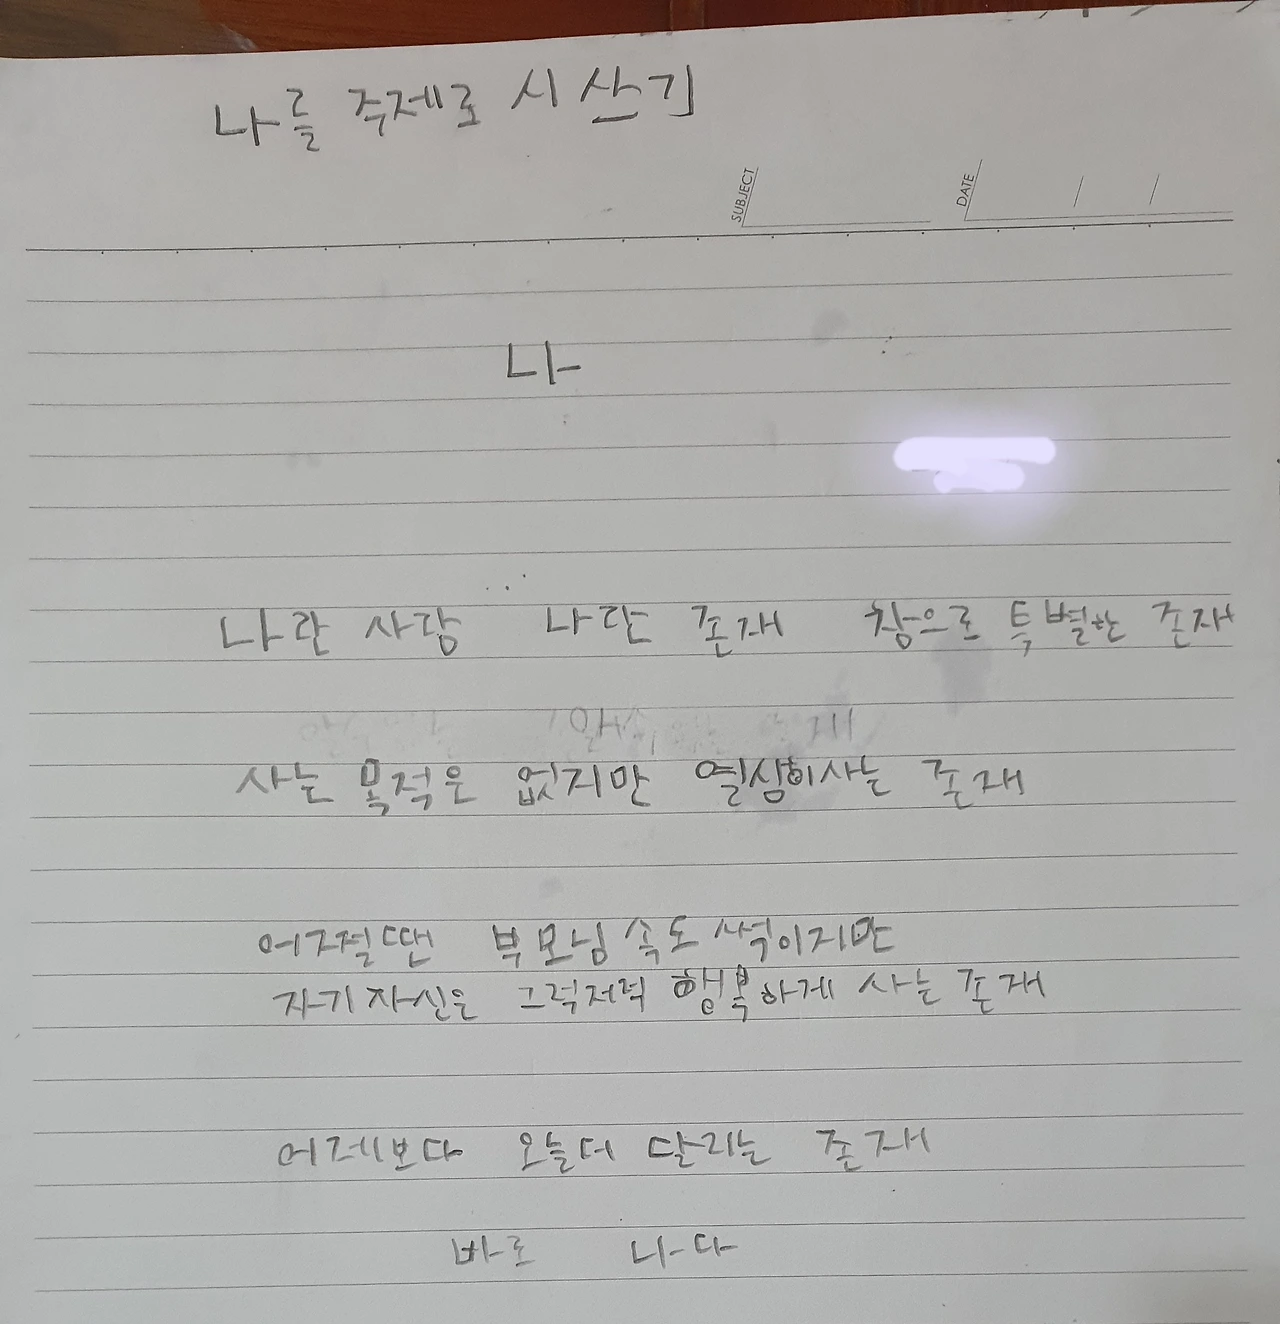 나를 주제로 시 쓰기
SUBJECT
DATE / /
나
나란 사람 나란 존재 참으로 특별한 존재
사는 목적은 없지만 열심히사는 존재
어쩔땐 부모님 속도 썩이지만
자기자신은 그럭저럭 행복하게 사는 존재
어제보다 오늘더 달리는 존재
바로 나다